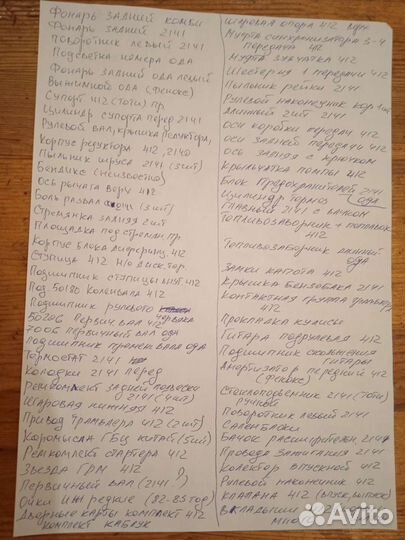 Фонарь задней комби
Фонарь задней 2141
Поворотник левый 2141
Подсветка номера ода
Фонарь задней ода левый
Выжимной ода (Фенокс)
Супорт 412 (тоти) пр.
Цилиндр супорта перед 2141
Рулевой вал, крышка редуктора,
Корпус редуктора 412, 2140
Пыльник шруса 2141 (3шт)
Бендикс (неизвестно)
Ось рычага верх 412
Боль развал (3шт)
Стремянка задняя 2шт
Площадка под стремян. пр.
Корпус блока диференц. 412
Ступица 412 н/о диск. тор.
Подшипник ступицы внут 412
Под. 50180 коленвала 412
Подшипник рулевого червяка
50206 первич вал 412
7006 первичный вал ода
Подшипник промеж вала ода
Термостат 2141
Колодки 2141 перед
Ремкомлект задней подвески 2141 (4шт)
Шаровая нижняя 412
Привод трамблера 412 (2шт)
Коромысла ГБЦ китай (5шт)
Ремкомлект стартера 412
Звезда ГРМ 412
Первичный вал (2141?)
Очки иж редкие (82-85 год)
Дверные карты комплект 412
комплект каблук
Шаровая опора 412
Муфта синхронизатора 3-4 передачи 412
Муфта 412
Шестерня 1 передачи 412
Пыльник рейки 2141
Рулевой наконечник кор 1шт
длинный 2шт 2141
Оси коробки передач 412
Оси задней передачи 412
Ось задняя с крючком
Крыльчатка помпы 412
Блок предохранителей 2141
Цилиндр тормоз ода
главный 2141 с бачком
Топливозаборник + поплавок 412
Топливозаборник длинный ода
Замки капота 412
Крышка бензобака 2141
Контактная группа трамблера 412
Прокладка кулисы
Гитара подрулевая 412
Подшипник скольжения гитары
Амортизатор передний 412 (Фенокс)
Стеклоподъемник 2141 (тоти) ручной
Поворотник левый 2141
Саленбаски
Бачок расширителн. 2141
Провода зажигания 2141
Колектор впускной 412
Рулевой наконечник 412
Клапана 412 (впуск, выпуск)
Вкладыши
Avito